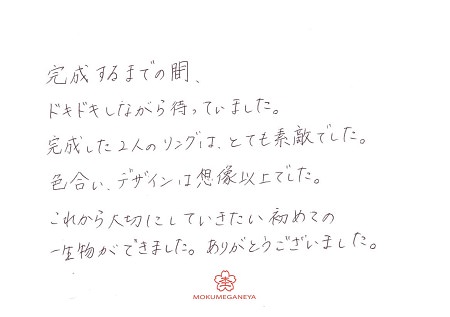 完成するまでの間、
ドキドキしながら待っていました。
完成した2人のリングは、とても素敵でした。
色合い、デザインは想像以上でした。
これから大切にしていきたい初めての
一生物ができました。ありがとうございました。
MOKUMEGANEYA